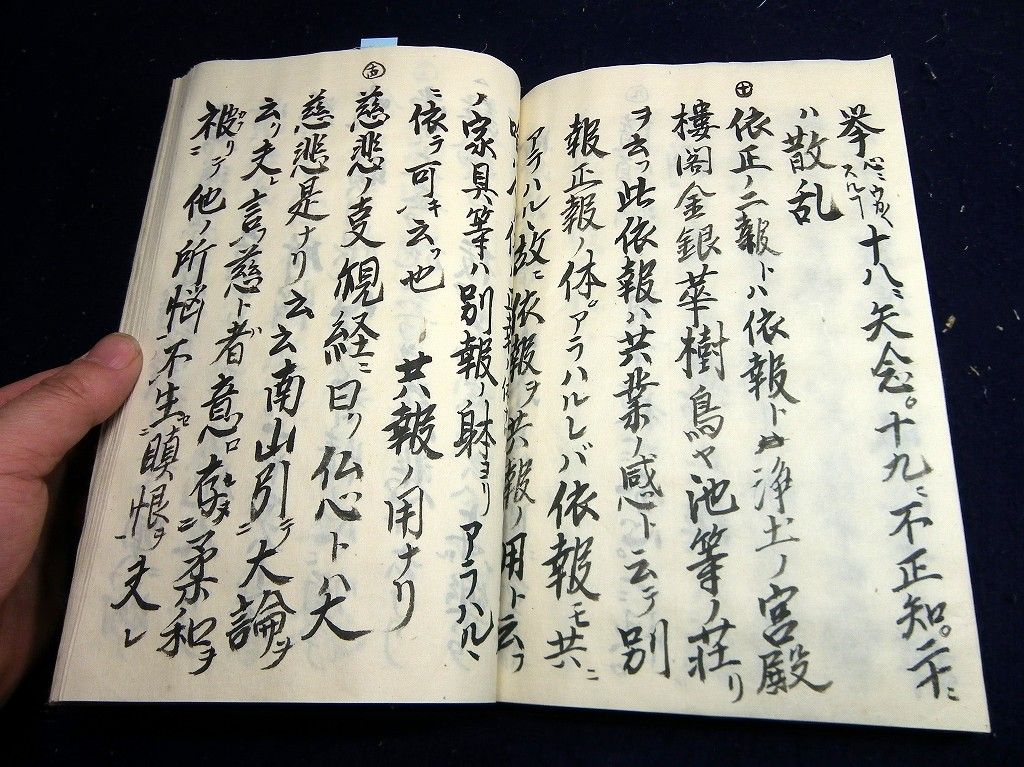 十
挙 十八ニ失念。十九ニ不正知。二十ニ
ハ散乱
依正ノ二報トハ依報トハ浄土ノ宮殿
樓閣金銀華樹鳥ヤ池等ノ荘リ
ヲ云フ此依報ハ共業ノ感ト云テ別
報正報ノ体。アラハルレバ依報モ共ニ
アラハルヽ故ニ依報ヲ共報ノ用ト云フ
古
ノ家具等ハ別報ノ躰ヨリアラハルヽ
ニ依テ可キ云フ也 共報ノ用ナリ
慈悲ノ支 観経ニ曰ク仏心トハ大
慈悲是ナリ云云南山引テ大論ヲ
云リ夫レ言フ慈ト者意ロ存シ柔和ヲ
被リテ他ノ所悩不生セ瞋恨ヲ文レ